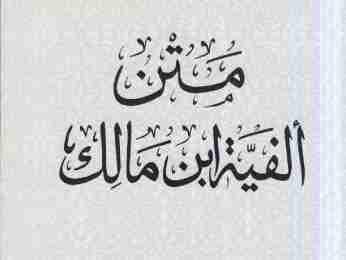 متن
ألفيَّة ابن مَالِك